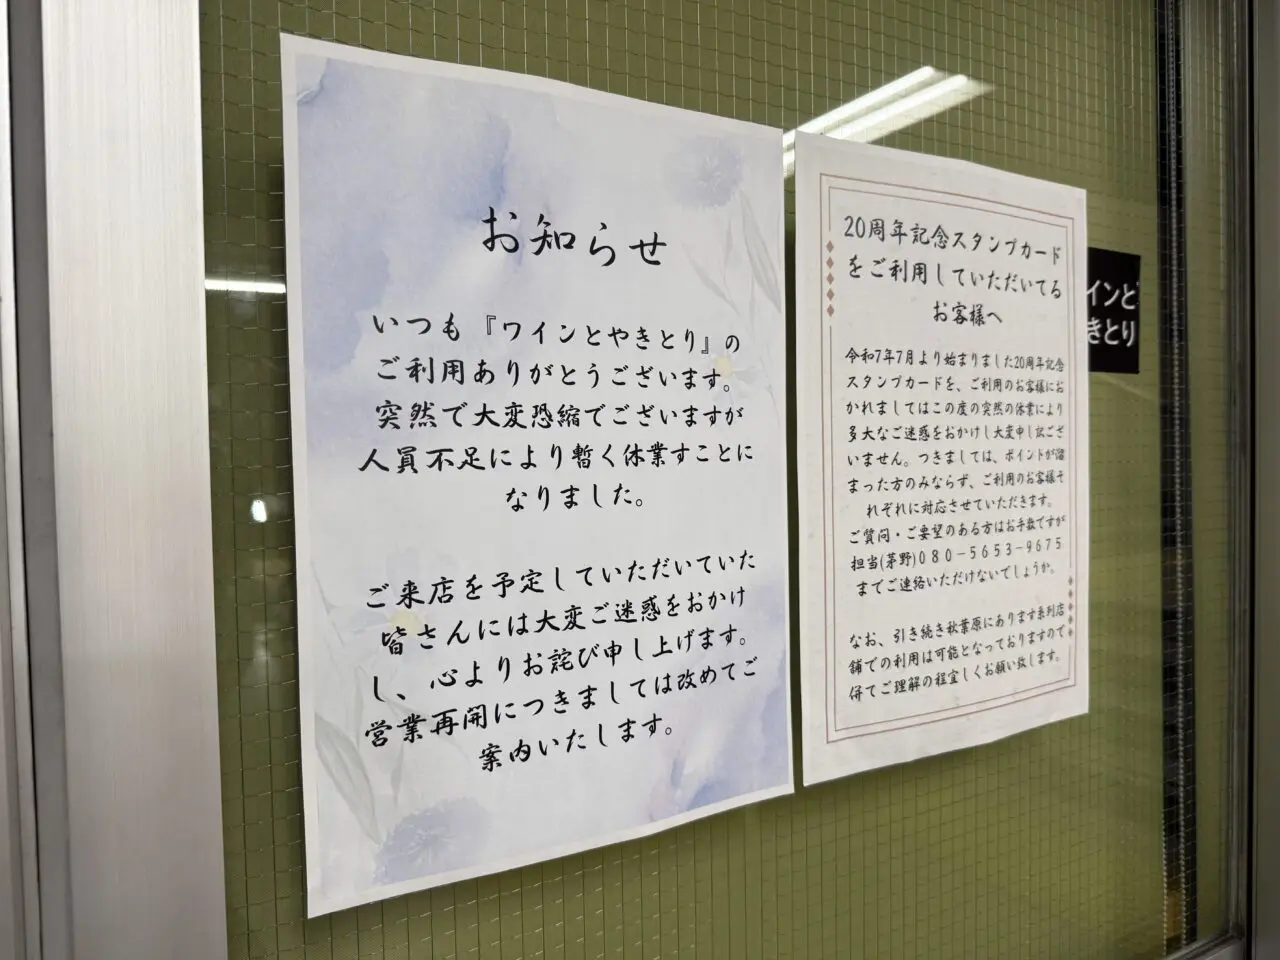 お知らせ
いつも『ワインとやきとり』の
ご利用ありがとうございます。
突然で大変恐縮でございますが
人員不足により暫く休業すことに
なりました。
ご来店を予定していただいていた
皆さんには大変ご迷惑をおかけ
し、心よりお詫び申し上げます。
営業再開につきましては改めてご
案内いたします。
20周年記念スタンプカード
をご利用していただいてる
お客様へ
令和7年7月より始まりました20周年記念
スタンプカードを、ご利用のお客様にお
かれましてはこの度の突然の休業により
多大なご迷惑をおかけし大変申し訳ござ
いません。つきましては、ポイントが溜
まった方のみならず、ご利用のお客様そ
れぞれに対応させていただきます。
ご質問・ご要望のある方はお手数ですが
担当(茅野)080-5653-9675
までご連絡いただけないでしょうか。
なお、引き続き秋葉原にあります系列店
舗での利用は可能となっておりますので
併てご理解の程宜しくお願い致します。
インと
きとり